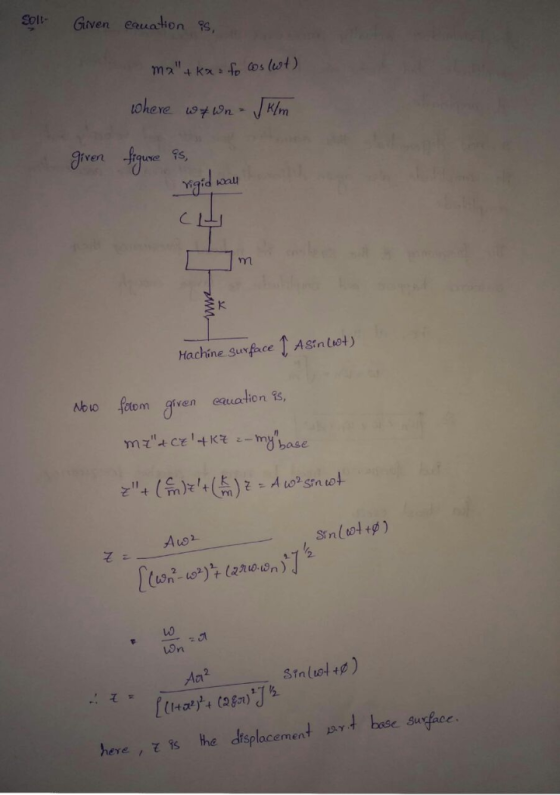 Sol:- Given equation is,
mx" + kx = f₀ cos(ωt)
where ω ≠ ωn = √k/m
given figure is,
rigid wall
C
m
K
Machine surface ↕ A sin(ωt)
Now from given equation is,
mz" + cz' + kz = -my"base
z" + (c/m)z' + (k/m)z = Aω² sinωt
z = Aω² / [(ωn² - ω²)² + (2ξω·ωn)²]^½ sin(ωt+φ)
ω/ωn = r
∴ z = Ar² / [(1+r²)² + (2ξr)²]^½ sin(ωt+φ)
here, z is the displacement w.r.t base surface.